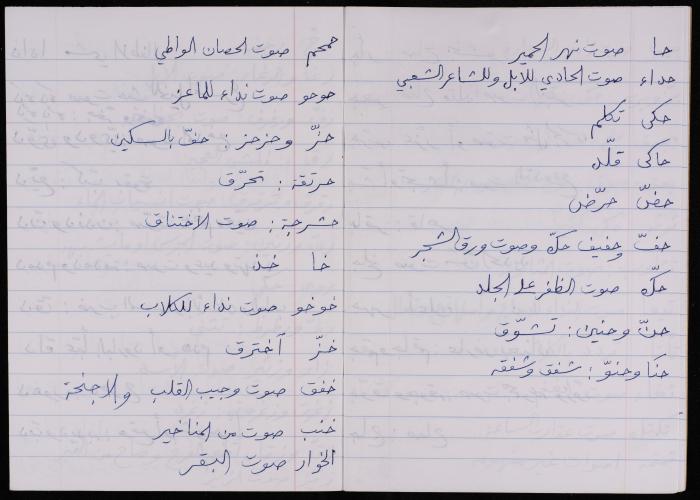 حا صوت نهر الحمير
حداء صوت الحادي للابل وللشاعر الشعبي
حكى تكلم
حاكى قلّد
حضّ حرّض
حفّ وحفيف حكّه وصوت ورق الشجر
حكّه صوت الظفر على الجلد
حنّ وحنين : تشوّق
حنا وحنوّ : شفق وشفقه
حمحم صوت الحصان الواطي
حوحو صوت نداء للماعز
حزّ وحزحز : حفّ بالسكين
حرتقة : تحرّق
حشرجة : صوت الاختناق
خا خذ
خوخو صوت نداء للكلاب
خزّ اخترق
خفق صوت وجيب القلب والاجنحة
خنب صوت من المناخير
الخوار صوت البقر